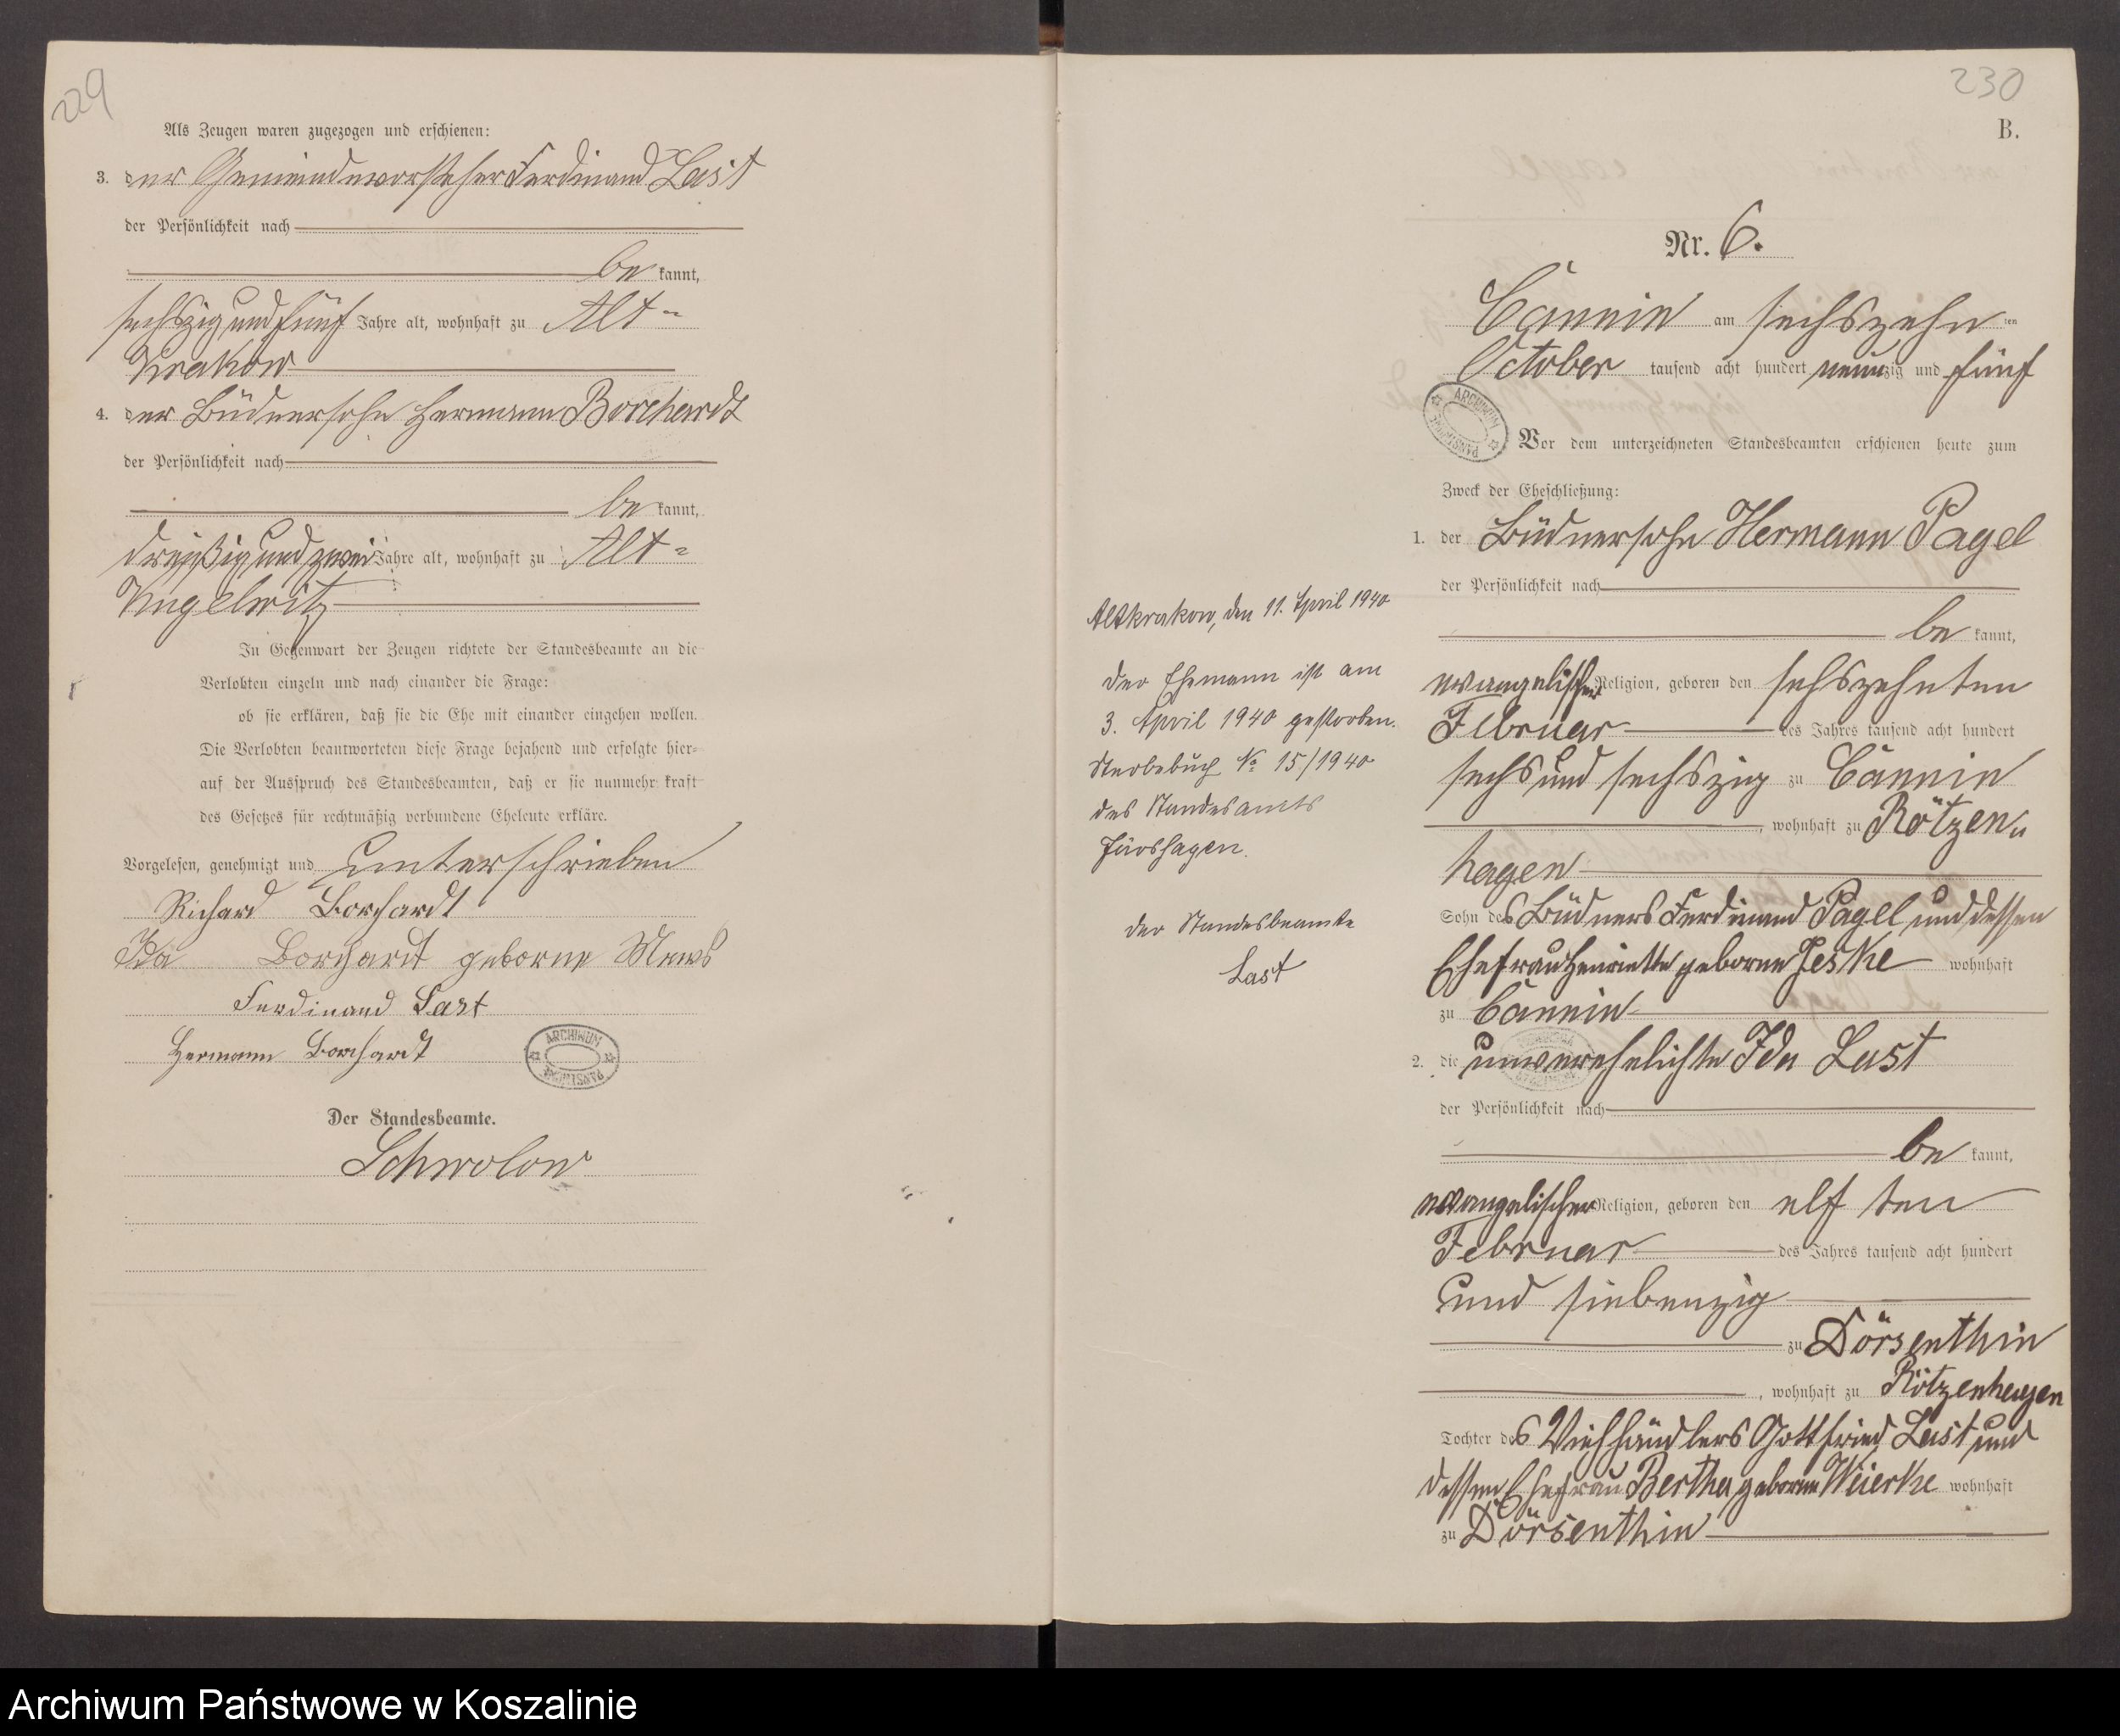 229
Als Zeugen waren zugezogen und erschienen:
3. der Gemeindevorsteher Ferdinand Last
der Persönlichkeit nach
be kannt,
sechszig und fünf Jahre alt, wohnhaft zu Alt-
Krakow
4. der Büdnersohn Hermann Borchardt
der Persönlichkeit nach
be kannt,
dreißig und zwei Jahre alt, wohnhaft zu Alt-
Kugelwitz
In Gegenwart der Zeugen richtete der Standesbeamte an die
Verlobten einzeln und nach einander die Frage:
ob sie erklären, daß sie die Ehe mit einander eingehen wollen.
Die Verlobten beantworteten diese Frage bejahend und erfolgte hier-
auf der Ausspruch des Standesbeamten, daß er sie nunmehr kraft
des Gesetzes für rechtmäßig verbundene Eheleute erkläre.
Vorgelesen, genehmigt und unterschrieben
Richard Borchardt
Ida Borchardt geborne Mews
Ferdinand Last
Hermann Borchardt
ARCHIWUM PAŃSTWOWE
Der Standesbeamte.
Schwolow
230
B.
Nr. 6.
Cannin am sechszehn ten
October tausend acht hundert neunzig und fünf
ARCHIWUM PAŃSTWOWE
Vor dem unterzeichneten Standesbeamten erschienen heute zum
Zweck der Eheschließung:
1. der Büdnersohn Hermann Pagel
der Persönlichkeit nach
be kannt,
evangelischer Religion, geboren den sechszehnten
Februar des Jahres tausend acht hundert
sechs und sechszig zu Cannin
, wohnhaft zu Rötzen-
hagen
Sohn des Büdners Ferdinand Pagel und dessen
Ehefrau Henriette geborne Jeske wohnhaft
zu Cannin
2. die unverehelichte Ida Last
der Persönlichkeit nach
be kannt,
evangelischer Religion, geboren den elf ten
Februar des Jahres tausend acht hundert
und siebenzig
zu Dörsenthin
, wohnhaft zu Rötzenhagen
Tochter des Viehhändlers Gottfried Last und
dessen Ehefrau Bertha geborne Weierke wohnhaft
zu Dörsenthin
Altkrakow, den 11. April 1940
Der Ehemann ist am
3. April 1940 gestorben.
Sterbebuch No 15/1940
des Standesamts
Järshagen.
Der Standesbeamte
Last
Archiwum Państwowe w Koszalinie